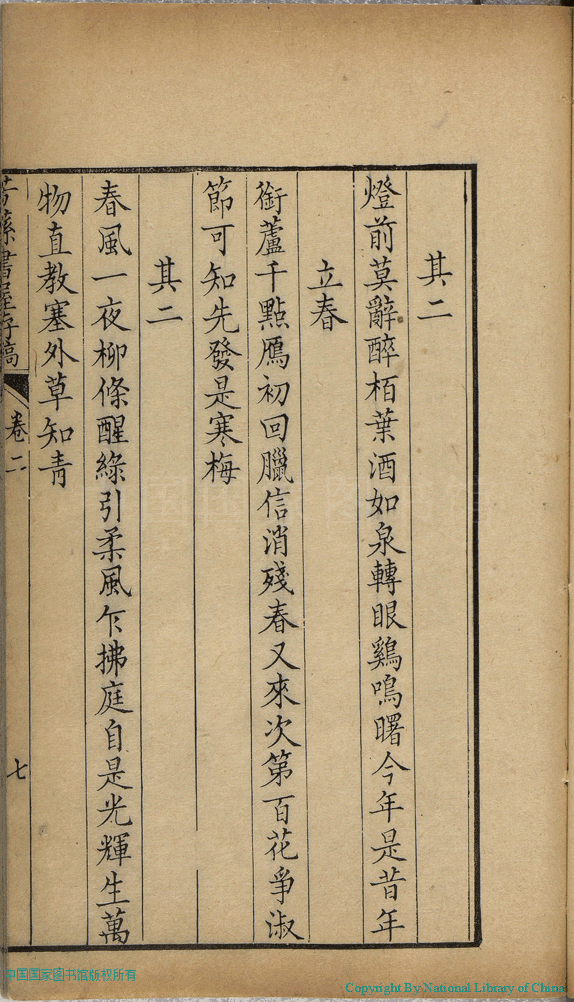 其二
燈前莫辭醉栢葉酒如泉轉眼鷄鳴曙今年是昔年
立春
銜蘆千點鴈初回臘信消殘春又來次第百花爭淑
節可知先發是寒梅
其二
春風一夜柳條醒綠引柔風乍拂庭自是光輝生萬
物直教塞外草知青
書屋存稿
卷二
七
中国国家图书馆版权所有
Copyright By National Library of China